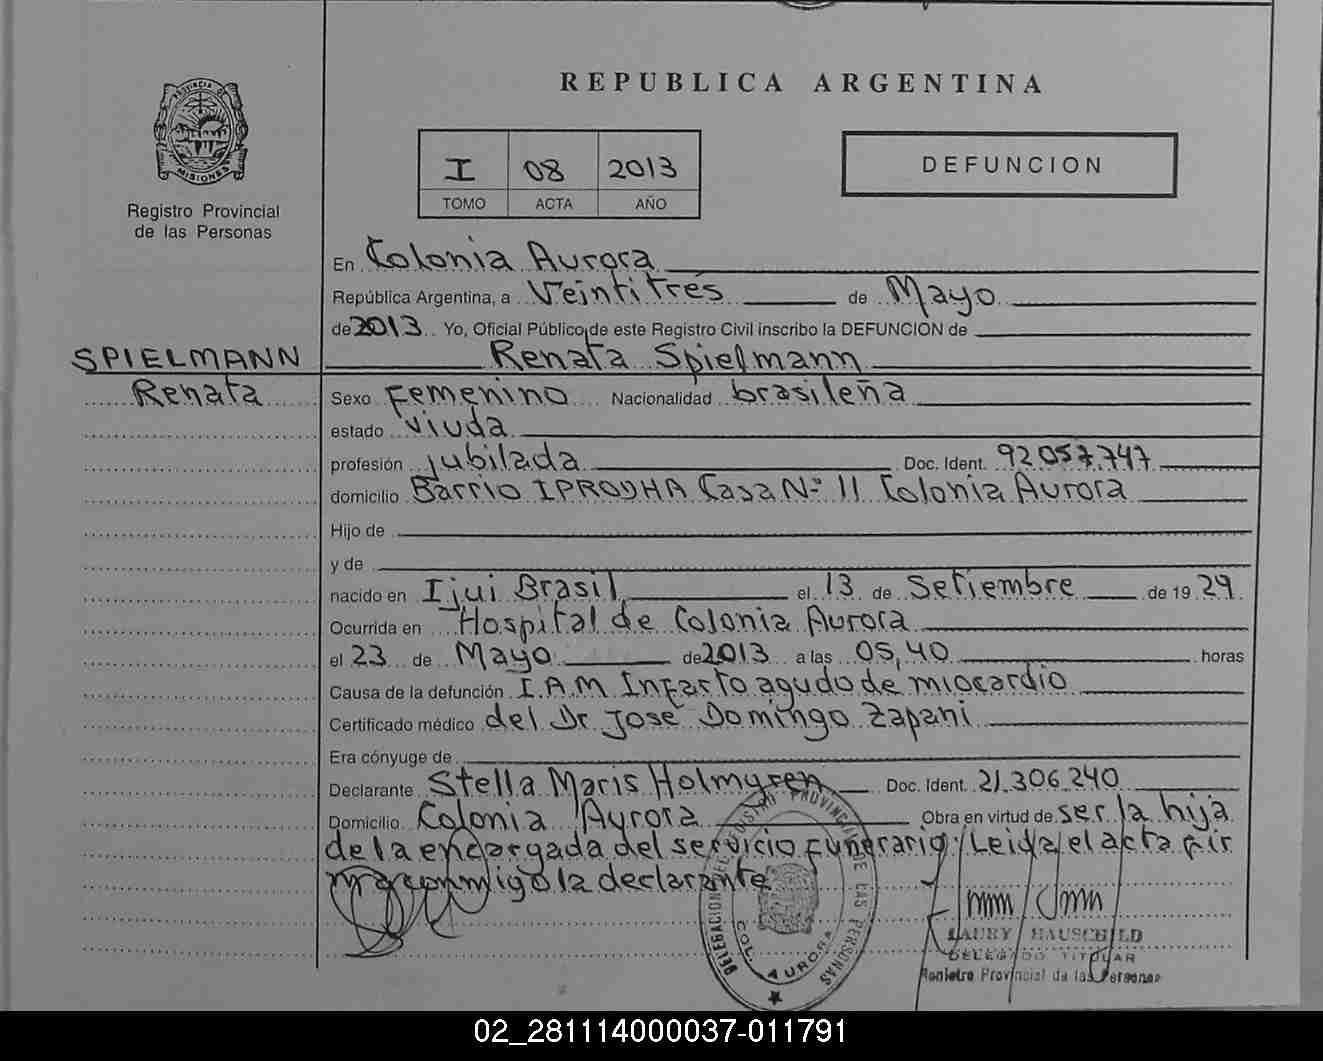 REPUBLICA ARGENTINA
PROVINCIA DE
MISIONES
Registro Provincial
de las Personas
I 08 2013
TOMO ACTA AÑO
DEFUNCION
En Colonia Aurora
República Argentina, a Veintitrés de Mayo
de 2013 Yo, Oficial Público de este Registro Civil inscribo la DEFUNCION de
SPIELMANN Renata Spielmann
Renata Sexo Femenino Nacionalidad brasileña
estado viuda
profesión jubilada Doc. Ident. 92.057.747
domicilio Barrio IPRODHA Casa Nº 11 Colonia Aurora
Hijo de
y de
nacido en Ijui Brasil el 13 de Setiembre de 19 29
Ocurrida en Hospital de Colonia Aurora
el 23 de Mayo de 2013 a las 05,40 horas
Causa de la defunción I.A.M Infarto agudo de miocardio
Certificado médico del Dr. José Domingo Zapani
Era cónyuge de
Declarante Stella Maris Holmgren Doc. Ident. 21.306.240
Domicilio Colonia Aurora Obra en virtud de ser la hija
de la encargada del servicio funerario, Leida el acta fir
ma conmigo la declarante
DELEGACION DEL REGISTRO PROVINCIAL DE LAS PERSONAS
COL. AURORA
LAURY HAUSCHILD
DELEGADO TITULAR
Registro Provincial de las Personas
02_281114000037-011791